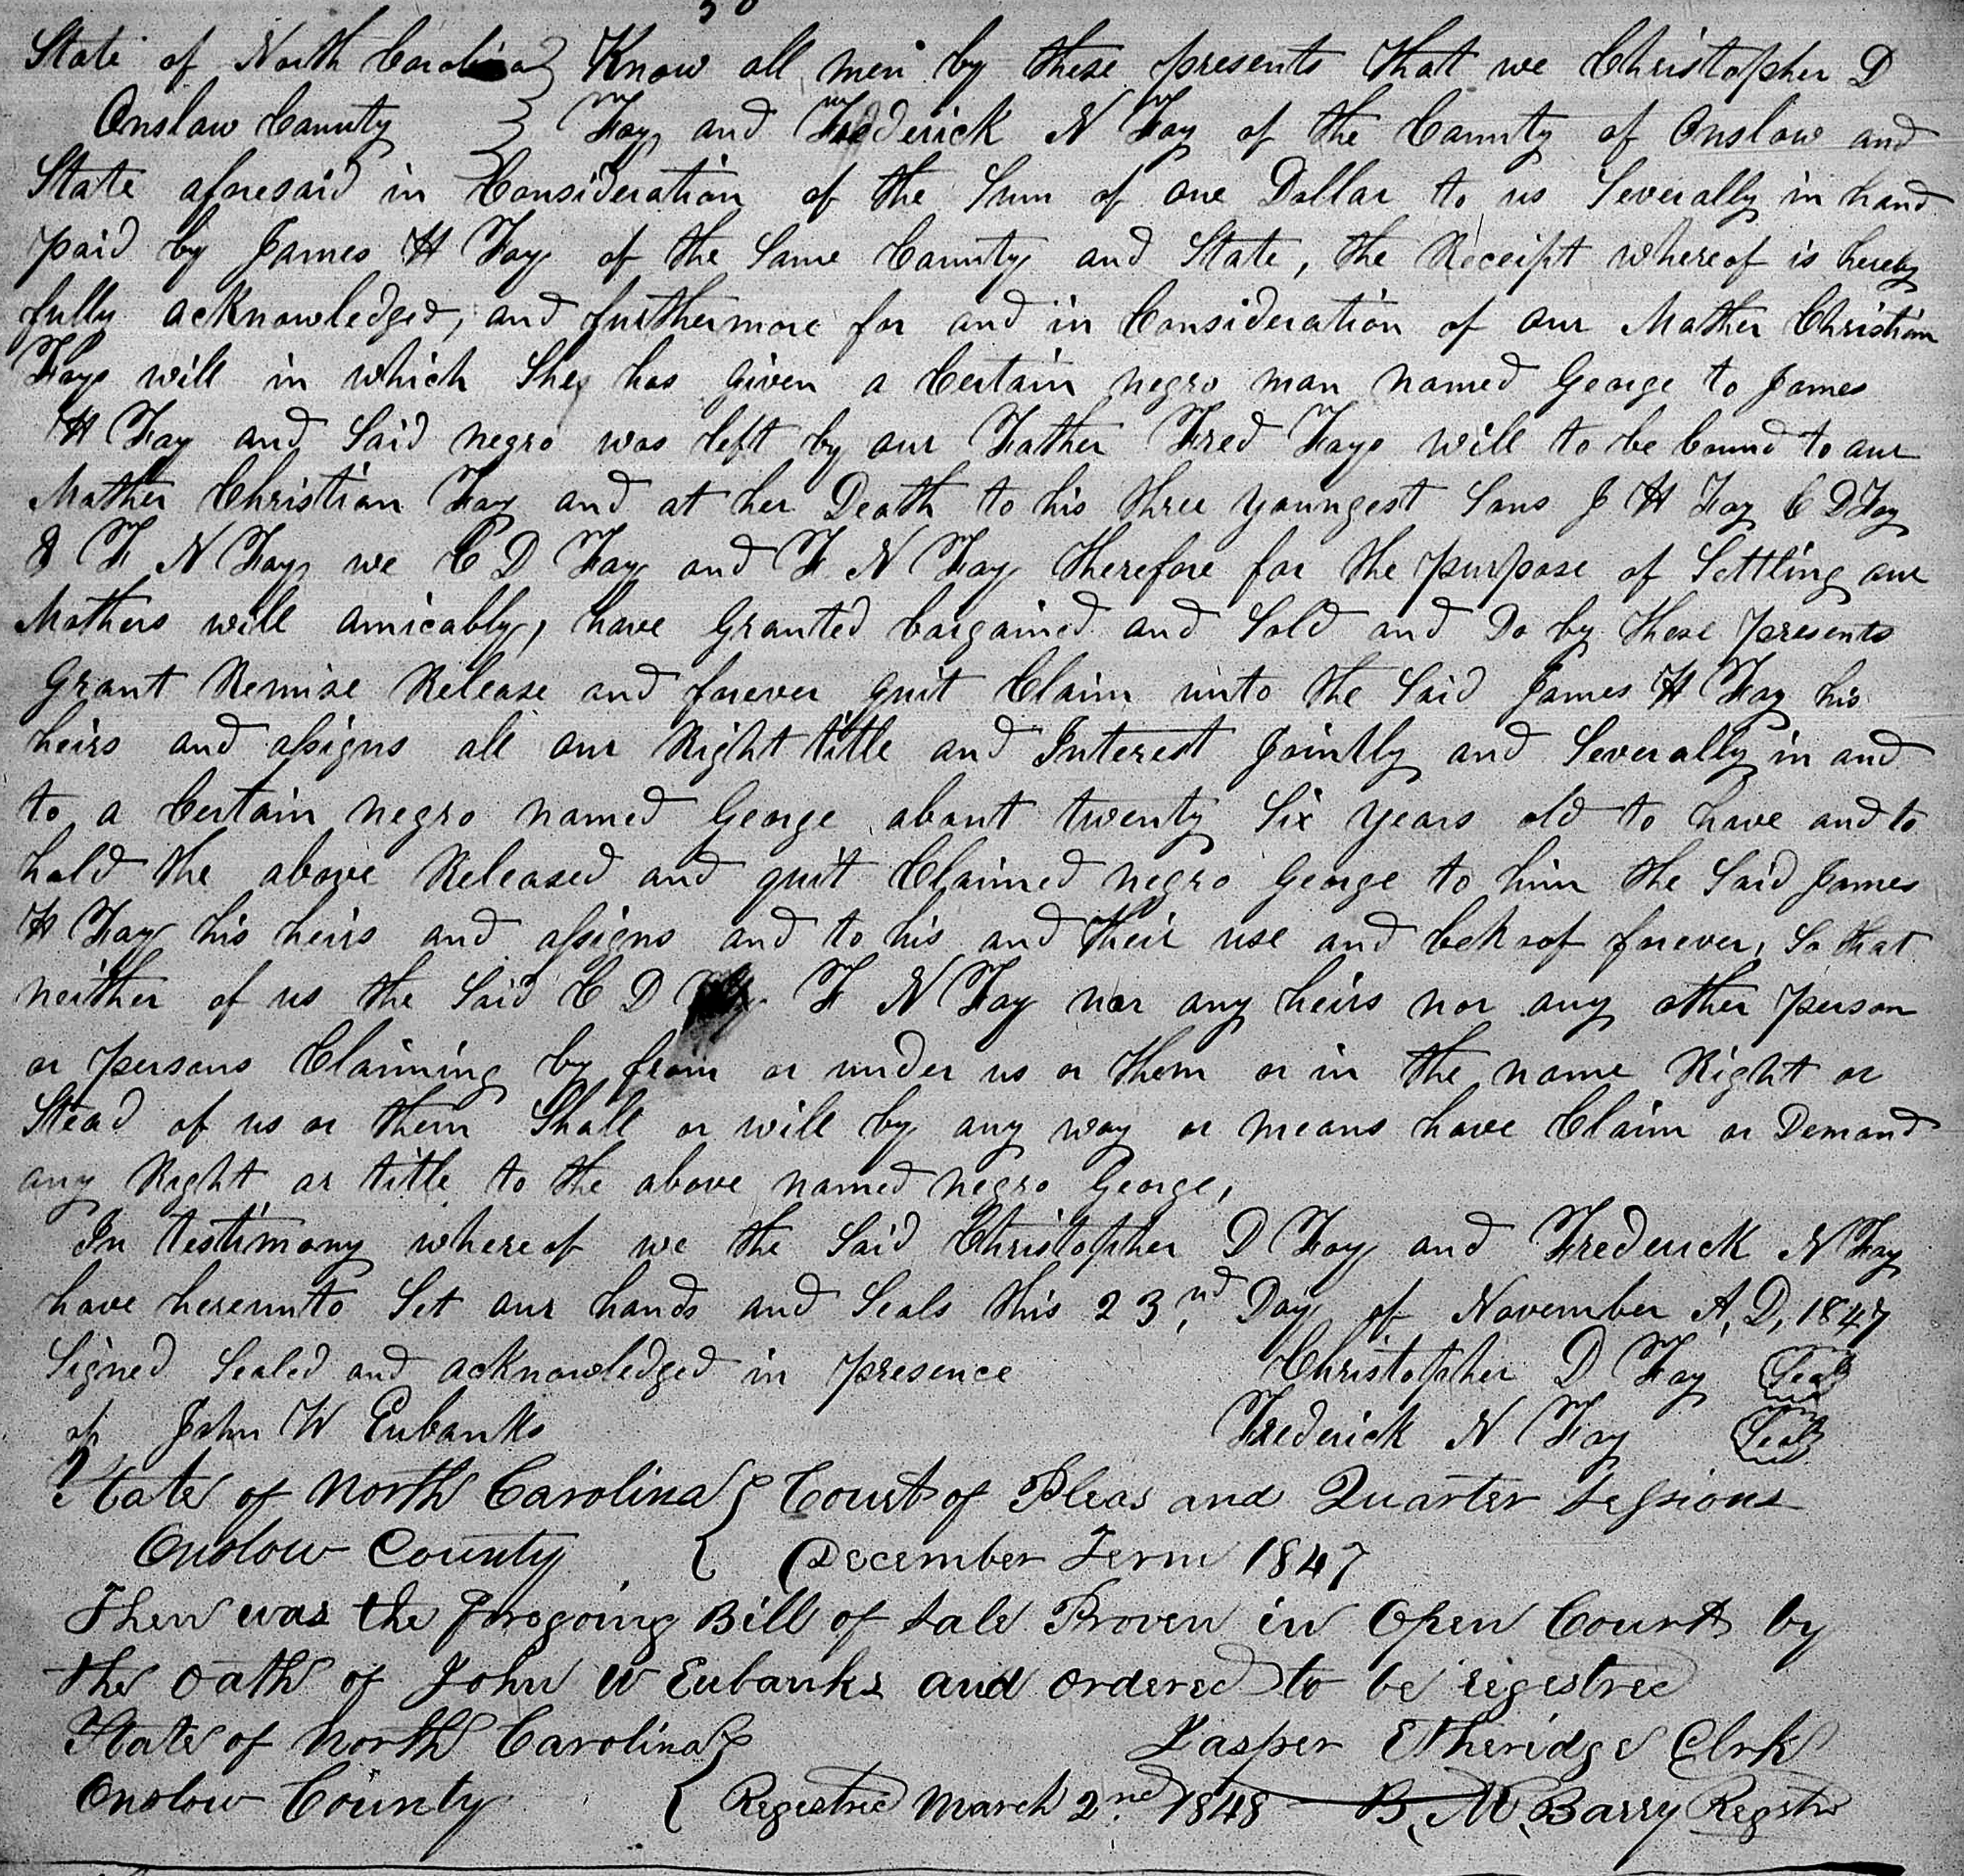 State of North Carolina } Know all men by these presents that we Christopher D
Onslow County } Foy, and Frederick N Foy of the County of Onslow and
State aforesaid in Consideration of the Sum of one Dollar to us Severally in hand
paid by James H Foy of the Same County and State, the Receipt whereof is hereby
fully acknowledged, and furthermore for and in Consideration of our Mother Christian
Foys will in which She has given a Certain negro man named George to James
H Foy and Said negro was left by our Father Fred Foys will to be bound to our
Mother Christian Foy and at her Death to his three youngest Sons J H Foy C D Foy
& F N Foy, we C D Foy and F N Foy therefore for the purpose of Settling our
Mothers will amicably, have Granted bargained and Sold and Do by these presents
Grant Remise Release and forever quit Claim unto the Said James H Foy his
heirs and assigns all our Right title and Interest Jointly and Severally in and
to a Certain negro named George about twenty Six years old to have and to
hold the above Released and quit Claimed negro George to him the Said James
H Foy his heirs and assigns and to his and their use and behoof forever, So that
neither of us the Said C D F N Foy nor any heirs nor any other person
or persons Claiming by from or under us or them or in the name Right or
Stead of us or them Shall or will by any way or means have Claim or Demand
any Right or title to the above named negro George,
In testimony whereof we the Said Christopher D Foy and Frederick N Foy
have hereunto Set our hands and Seals this 23,nd Day of November A,D, 1847
Signed Sealed and acknowledged in presence Christopher D Foy Seal
of John W Eubanks Frederick N Foy Seal
State of North Carolina } Court of Pleas and Quarter Sessions
Onslow County { December Term 1847
Then was the forgoing Bill of Sale Proven in Open Court by
the oath of John W Eubanks and ordered to be rigestred
State of North Carolina } Jasper Etheridge Clrk
Onslow County { Registred March 2nd 1848 B, M, Barry Registr